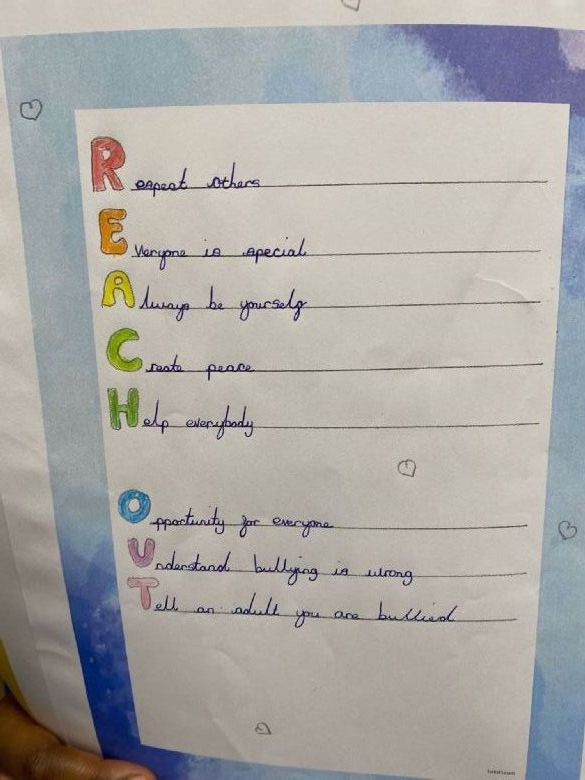 Respect others
Everyone is special
Always be yourself
Create peace
Help everybody
Opportunity for everyone
Understand bullying is wrong
Tell an adult you are bullied